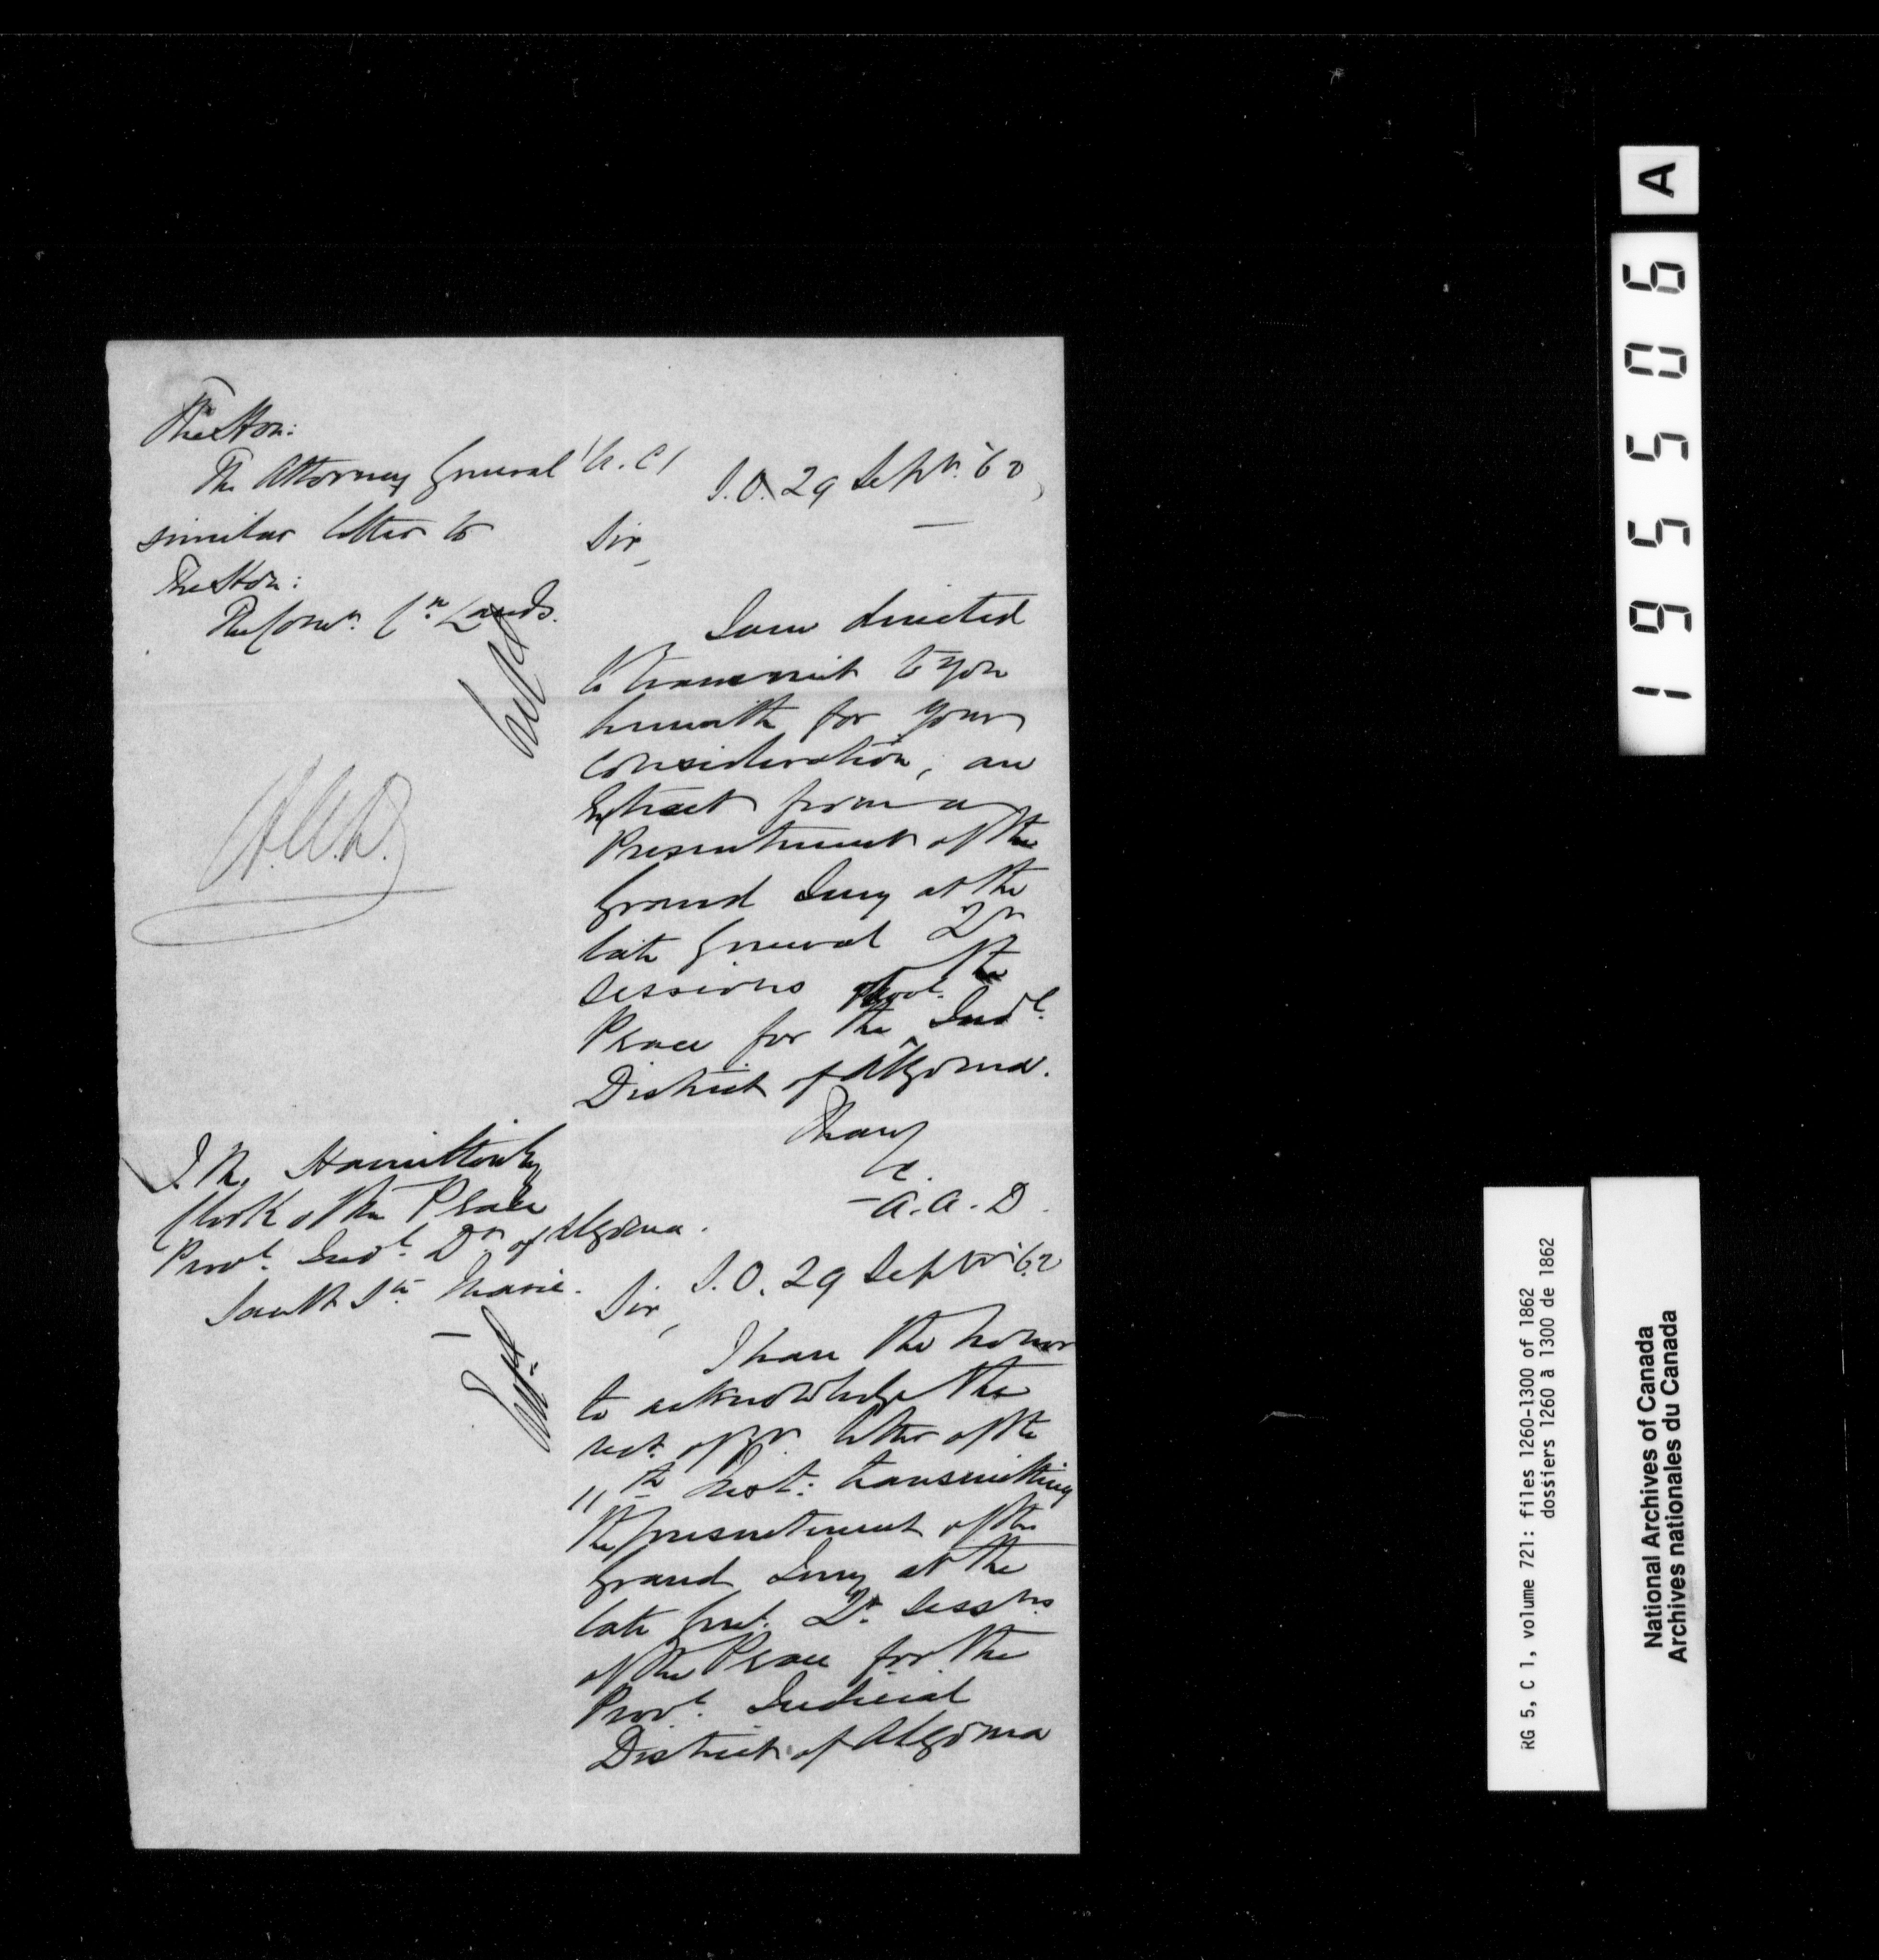 The Hon:
The Attorney General (U.C)
similar letter to
The Hon:
The Comr. Cn. Lands.
S.O. 29 Septr. '62,
Sir,
I am directed
to transmit to you
herewith for your
consideration, an
Extract from a
Presentment of the
Grand Jury at the
late General Qr
Sessions of the
Peace for the Provl. Judl.
District of Algoma.
I have
&c.
- A.A.D.
J.M. Hamilton Esq
Clerk of the Peace
Provl. Judl. Dn. of Algoma.
Sault Ste Marie.
S.O. 29 Septr '62
Sir,
I have the honor
to acknowledge the
rect. of yr. letter of the
11th Inst: transmitting
the presentment of the
Grand Jury at the
late Genl. Qr. Sessns.
of the Peace for the
Provl. Judicial
District of Algoma
195506 A
RG 5, C 1, volume 721: files 1260-1300 of 1862
dossiers 1260 à 1300 de 1862
National Archives of Canada
Archives nationales du Canada